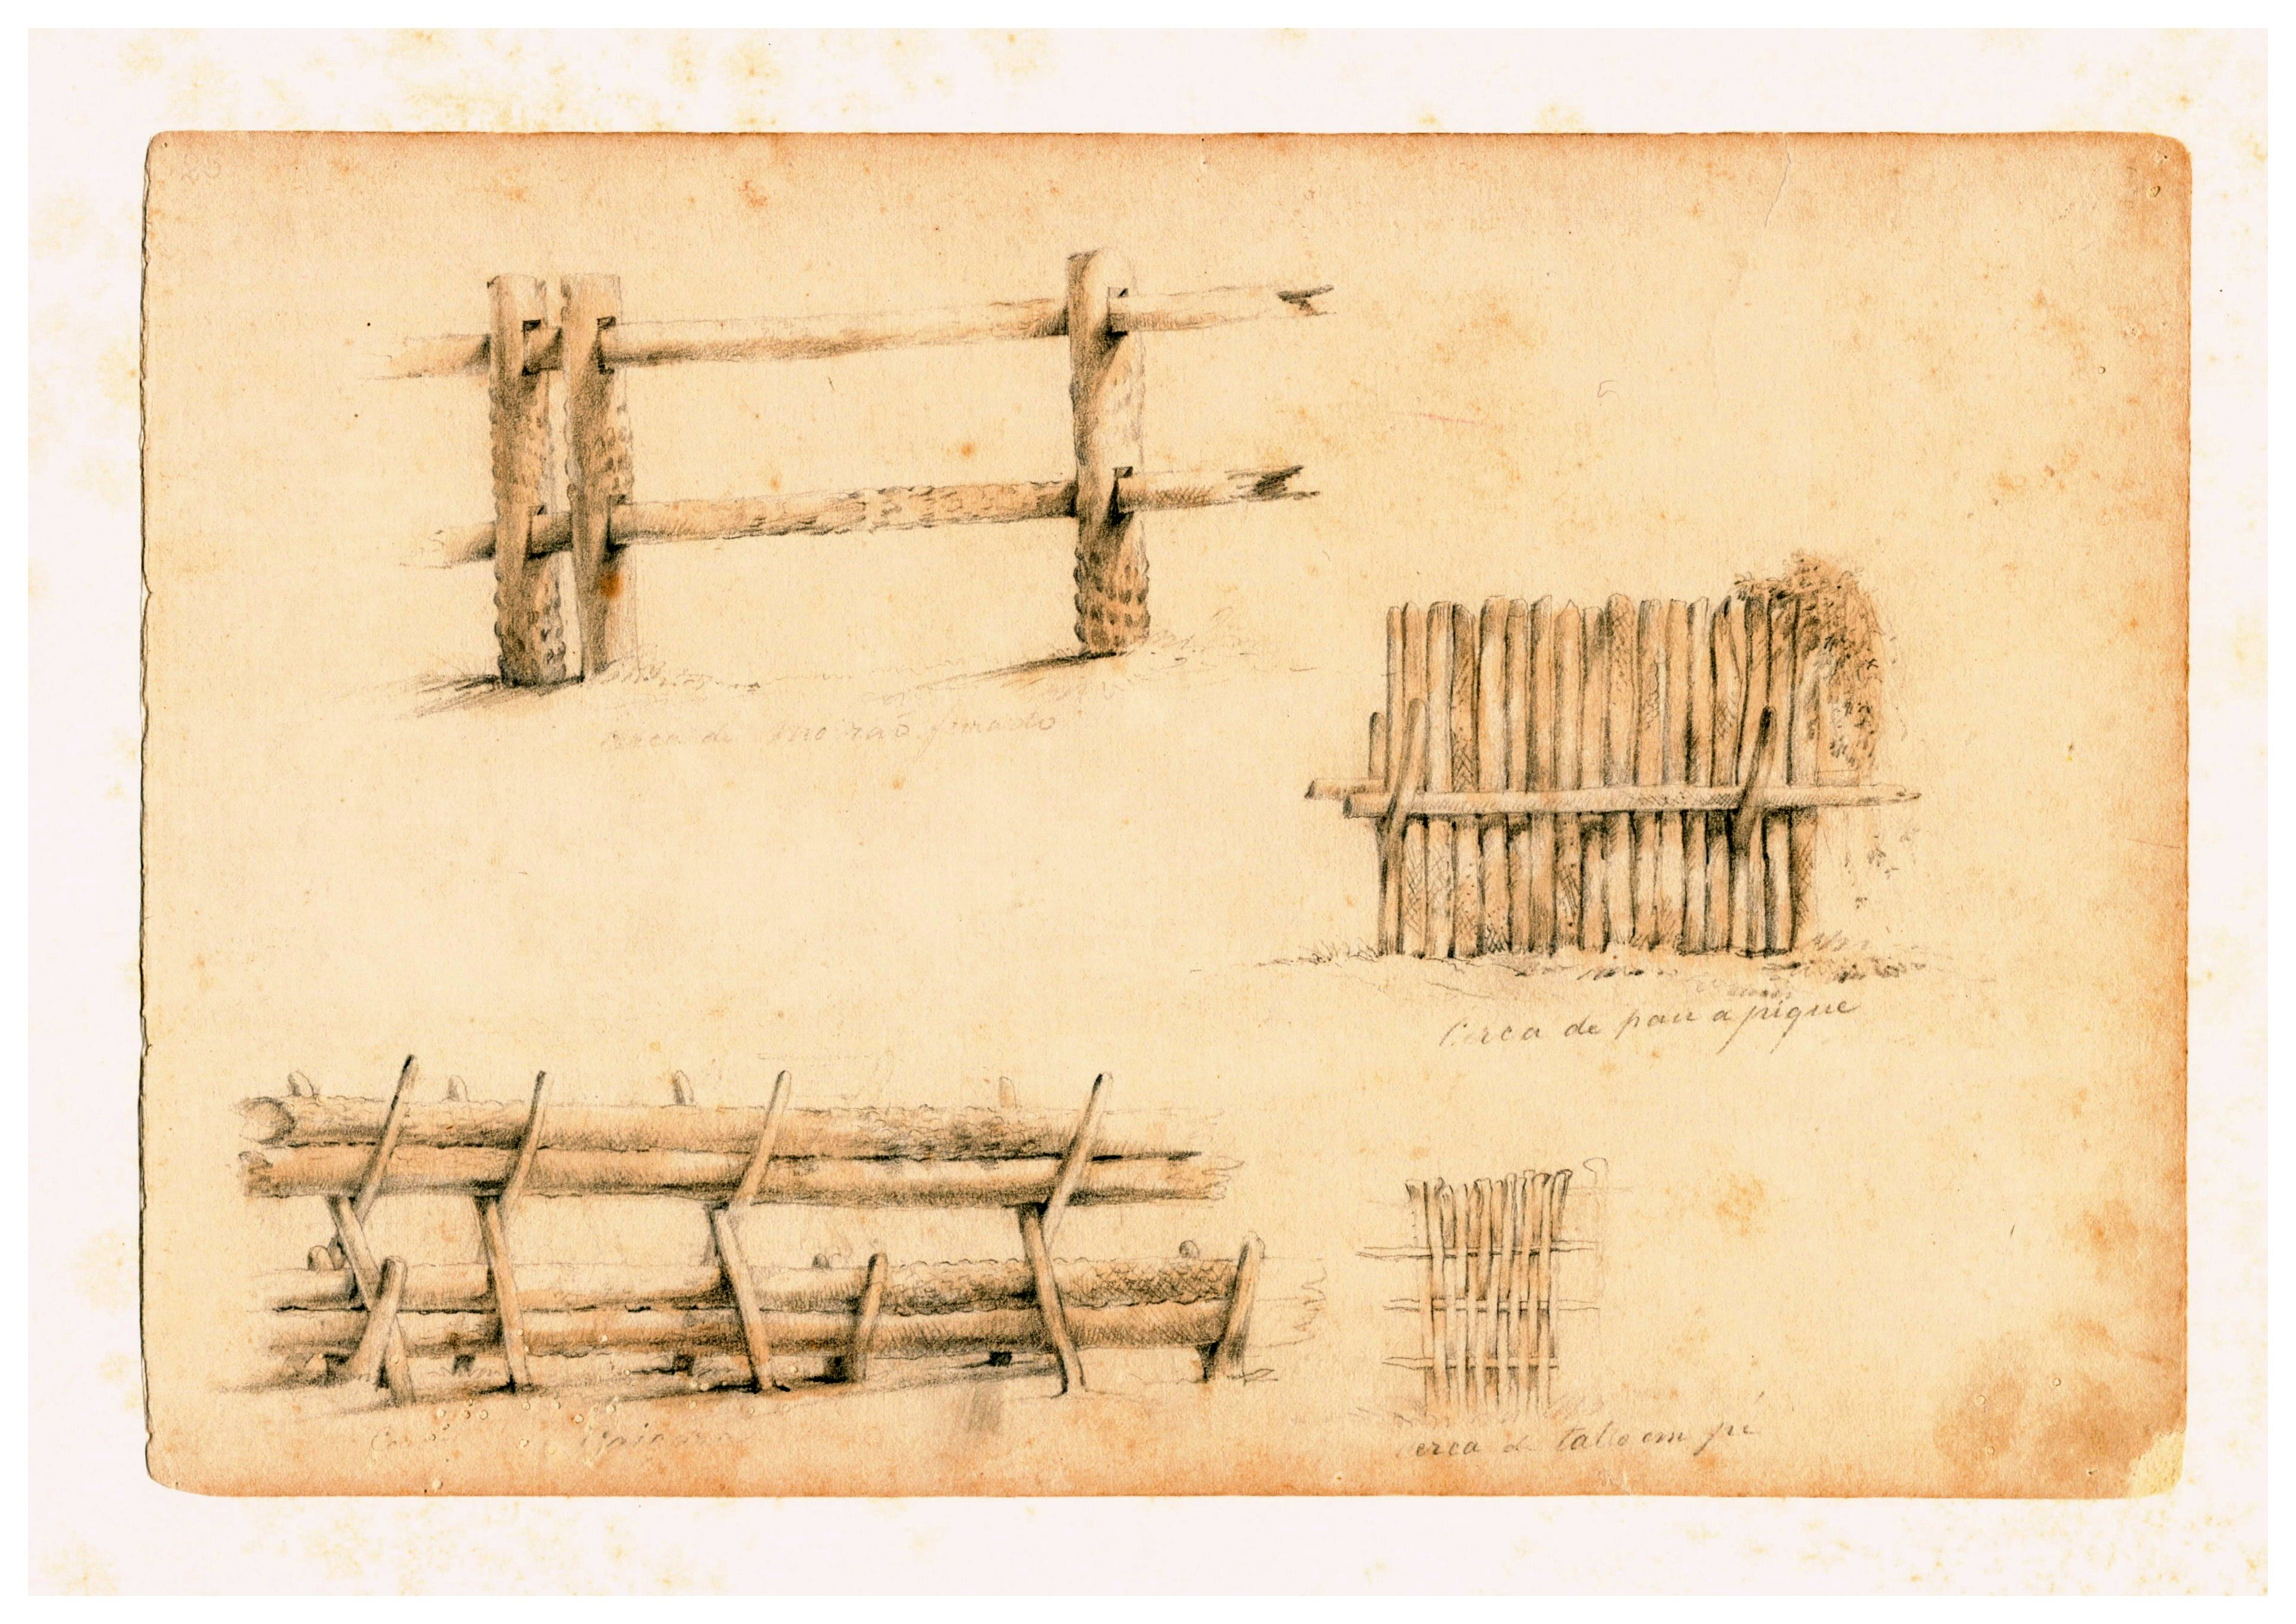 Cerca de moirão furado
Cerca de pau a pique
Cerca de tallo em pé